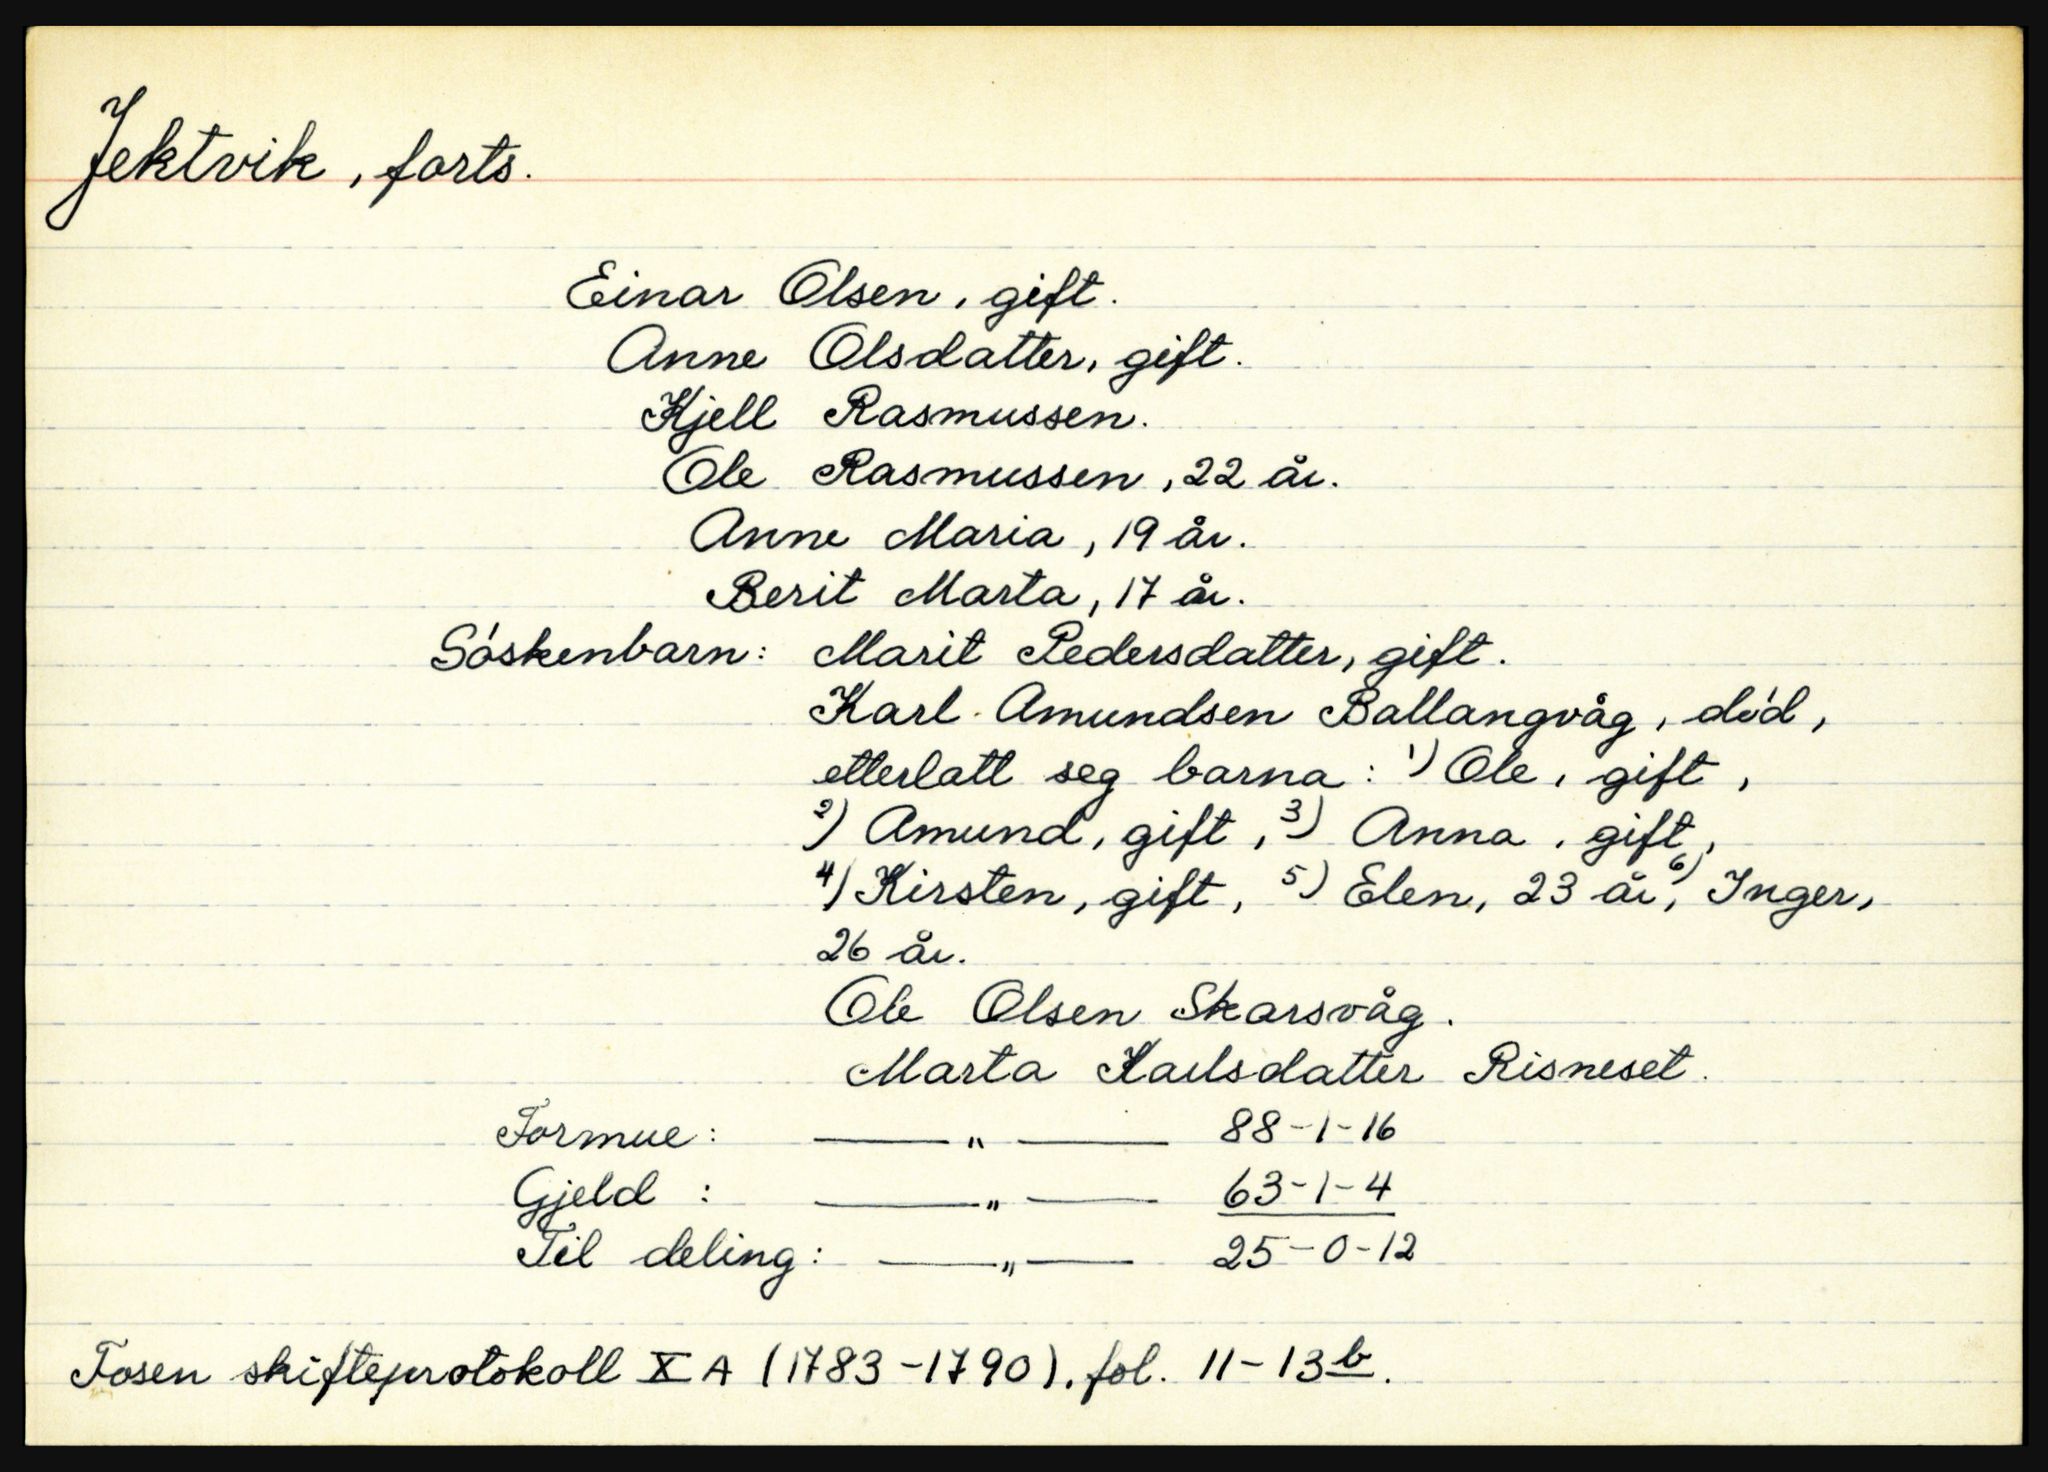 Jektvik, forts.
Einar Olsen, gift.
Anne Olsdatter, gift.
Kjell Rasmussen.
Ole Rasmussen, 22 år.
Anne Maria, 19 år.
Berit Marta, 17 år.
Söskenbarn: Marit Pedersdatter, gift.
Karl Amundsen Ballangvåg, död,
etterlatt seg barna: 1) Ole, gift,
2) Amund, gift, 3) Anna, gift,
4) Kirsten, gift, 5) Elen, 23 år, 6) Inger,
26 år.
Ole Olsen Skarsvåg.
Marta Karlsdatter Risneset.
Formue: —„— 88-1-16
Gjeld: —„— 63-1-4
Til deling: —„— 25-0-12
Fosen skifteprotokoll X A (1783-1790), fol. 11-13b.